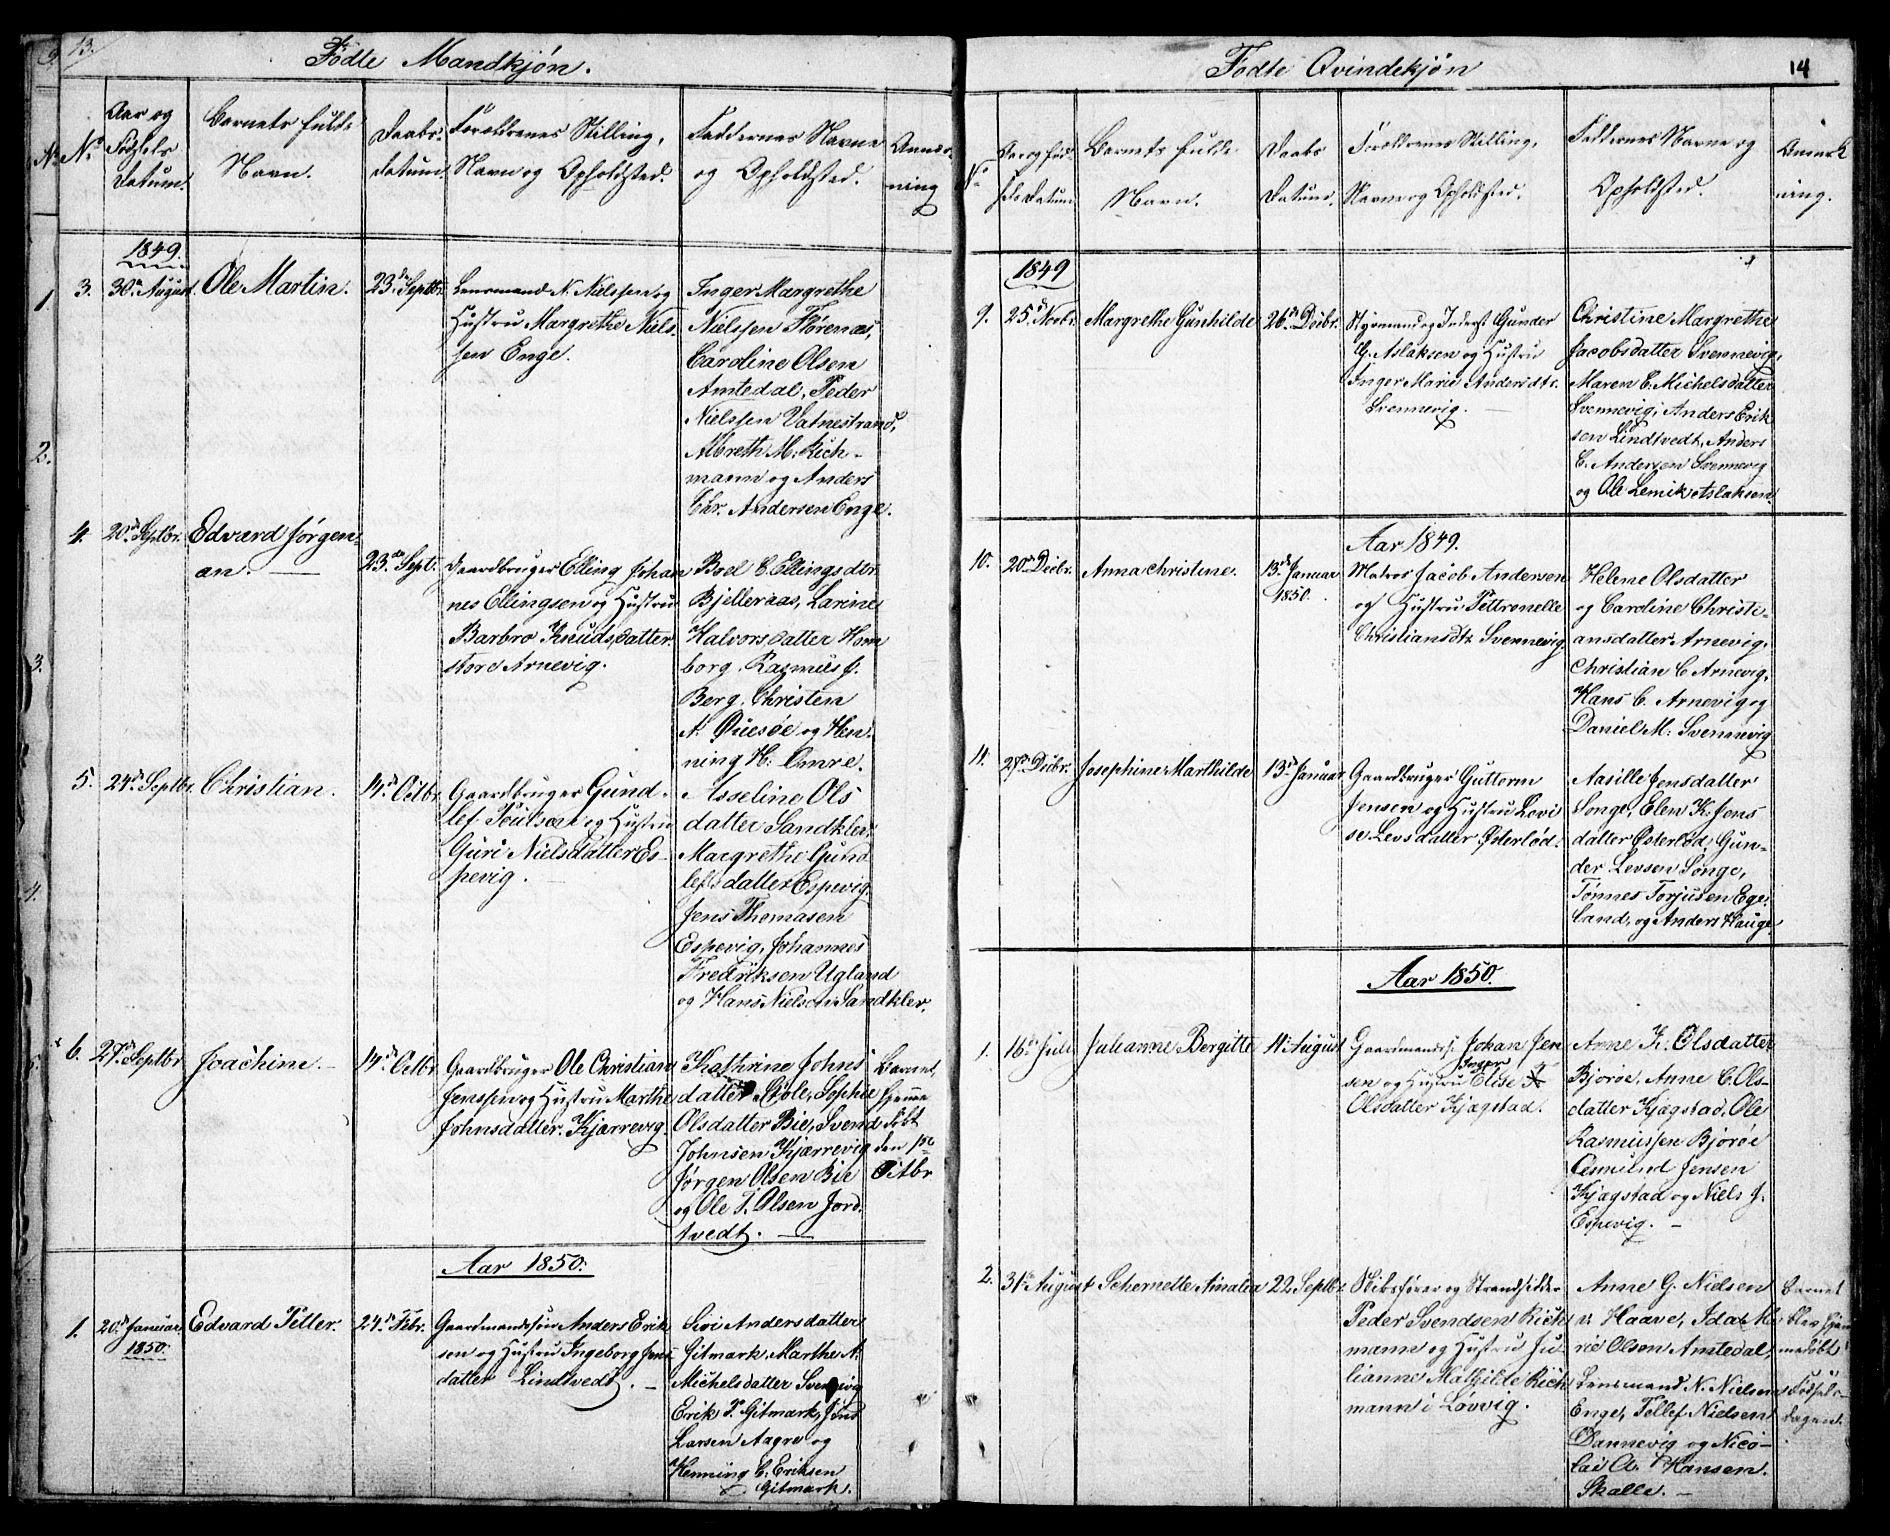 13.
Fødte Mandkjøn.
No
Aar og
Fødsels
Datum.
Barnets fulde
Navn.
Daabs-
datum.
Forældrenes Stilling,
Navn og Opholdsted.
Faddernes Navne
og Opholdsted.
Anmær-
ning
1849.
3.
30te August.
Ole Martin.
23de Septbr.
Lensmand N. Nielssen og
Hustru Margrethe Niels-
sen Enge.
Inger Margrethe
Nielssen Flørenæs,
Caroline Olsen
Amtedal, Peder
Nielssen Vatnestrand,
Albreth M. Rich-
mann og Anders
Chr. Andersen Enge.
4.
20de Septbr.
Edvard Jørgen-
an.
23de Septr.
Gaardbruger Elling Johan
nes Ellingsen og Hustru
Barbro Knudsdatter
store Arnevig.
Boel C. Ellingsdtr
Bjelleraas, Larine
Halvorsdatter Hom
borg, Rasmus J.
Berg, Christen
A. Quesøe og Hen-
ning H. Omre.
5.
24de Septbr.
Christian.
14de Octbr.
Gaardbruger Gund-
lef Poulsen og Hustru
Guri Nielsdatter Es-
pevig.
Asseline Ols
datter Sandkler,
Margrethe Gund
lefsdatter Espevig,
Jens Thomasen
Espevig, Johannes
Fredriksen Ugland
og Hans Nielsen Sandkler.
6.
27de Septbr.
Joachim.
14de Octbr.
Gaardbruger Ole Christian
Jenssen og Hustru Marthe
Johnsdatter Kjærrevig.
Kathrine Johns
datter Skole, Sophie
Olsdatter Bie, Svend
Johnsen Kjærrevig
Jørgen Olsen Bie
og Ole T. Olsen Jord-
tvedt.
Barnet
hjemme
døbt
den 1ste
Octbr.
Aar 1850.
1.
20de Januar
1850.
Edvard Petter.
24de Febr.
Gaardmandssøn Anders Erik
sen og Hustru Ingeborg Jens
datter Lindtvedt.
Siri Andersdatter
Gitmark, Marthe A.
Michelsdatter Svennevig
Erik P. Gitmark, Jens
Larsen Aagre og
Henning C. Eriksen
Gitmark.
Fødte Qvindekjøn
14
No
Aar og Fød-
selsdatum
Barnets fulde
Navn.
Daabs
Datum.
Forældrenes Stilling,
Navne og Opholdsted.
Faddernes Navne og
Opholdsted.
Anmærk
ning.
1849
9.
25de Novbr.
Margrethe Gunhilde
26de Decbr.
Styrmand og Inderst Gunder
G. Aslaksen og Hustru
Inger Marie Andersdtr.
Svennevig.
Christine Margrethe
Jacobsdatter Svennevig,
Maren C. Michelsdatter
Svennevig, Anders Erik
sen Lindtvedt, Anders
C. Andersen Svennevig
og Ole Lemik Aslaksen.
Aar 1849.
10.
20de Decbr.
Anna Christine.
13de Januar
1850.
Matros Jacob Andersen
og Hustru Pettronelle
Christiansdtr Svennevig
Helene Olsdatter
og Caroline Christi-
ansdatter Arnevig,
Christian C Arnevig,
Hans C. Arnevig og
Daniel M. Svennevig
11.
27de Decbr.
Josephine Marthilde
13de Januar
Gaardbruger Guttorm
Jensen og Hustru Lovi
se Levsdatter Østerlod.
Aasille Jensdatter
Songe, Elen K. Jens
datter Østerlod, Gun-
der Levsen Songe,
Tønnes Torjusen Ege-
land, og Anders Hauge
Aar 1850.
1.
16de Juli
Julianne Bergitte
11 August
Gaardmands. Johan Jen
sen og Hustru Elise
Inger
Olsdatter Kjøgstad.
Anne K. Olsdatter
Bjorøe, Anne C. Ols-
datter Kjøgstad, Ole
Rasmussen Bjorøe
Omund Jensen
Kjøgstad og Niels J.
Espevig.
2.
31te August
Schernelle Amalia
22 Septbr.
Skibsfører og Strandsidder
Peder Svendsen Rich
mann og Hustru Ju-
lianne Mathilde Rich
mann i Løvvig.
Anne G. Nielsen
v. Haave, Ida Ma
rie Olsen Amtedal,
Lensmand N. Nielsen
Enge, Tellef Nielsen
Dannevig og Nico-
lai A. Hansen
Skalle.
Barnet
blev hjem
medøbt
Fødsels-
dagen.